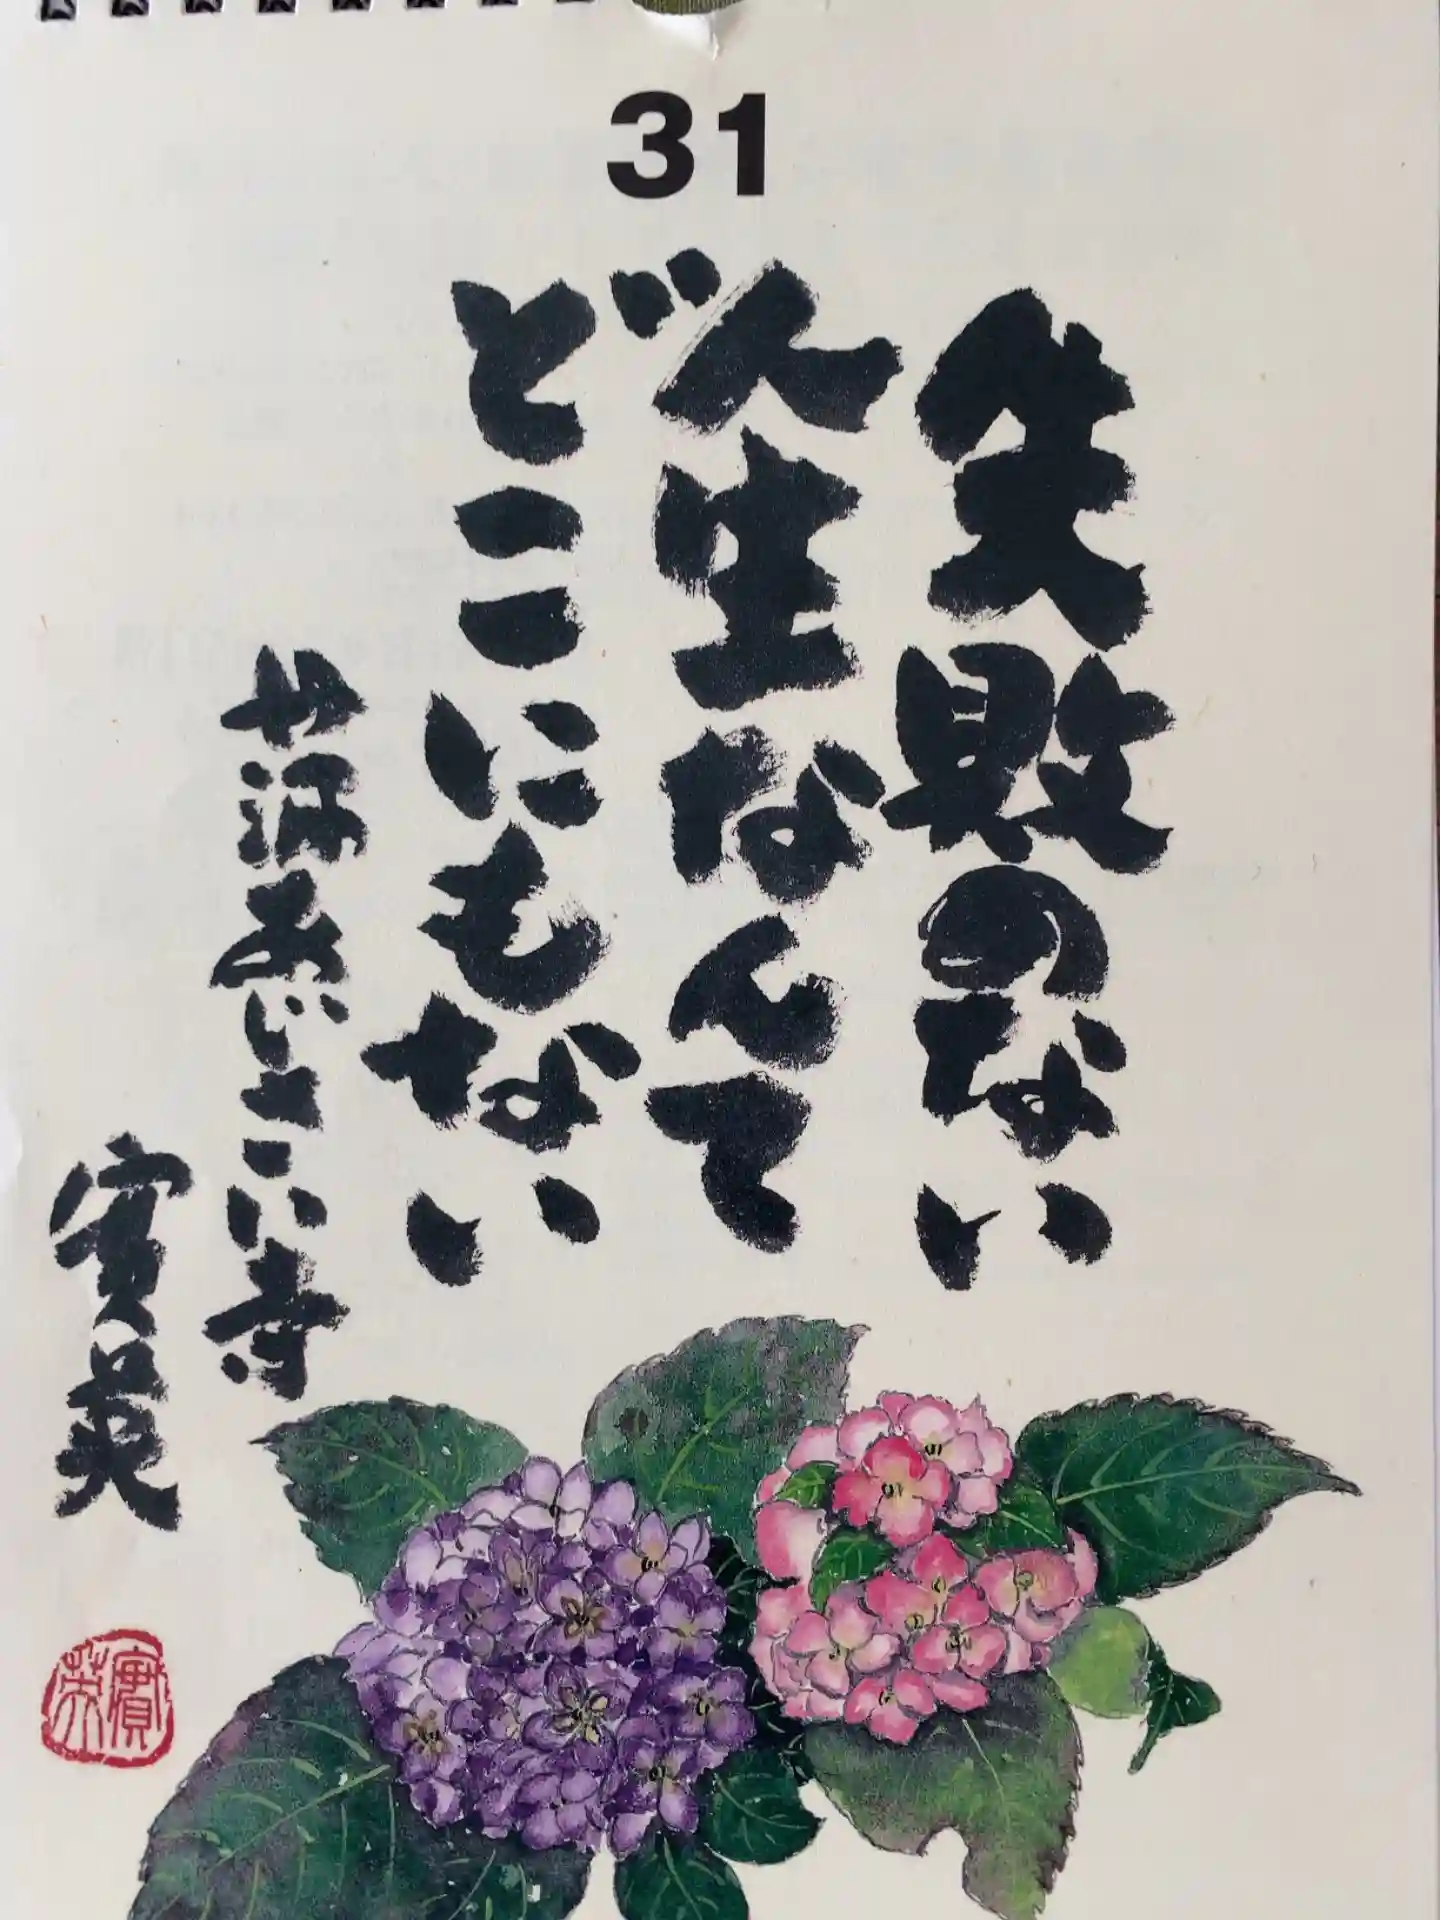 31
失敗のない
人生なんて
どこにもない
あじさい寺
實英